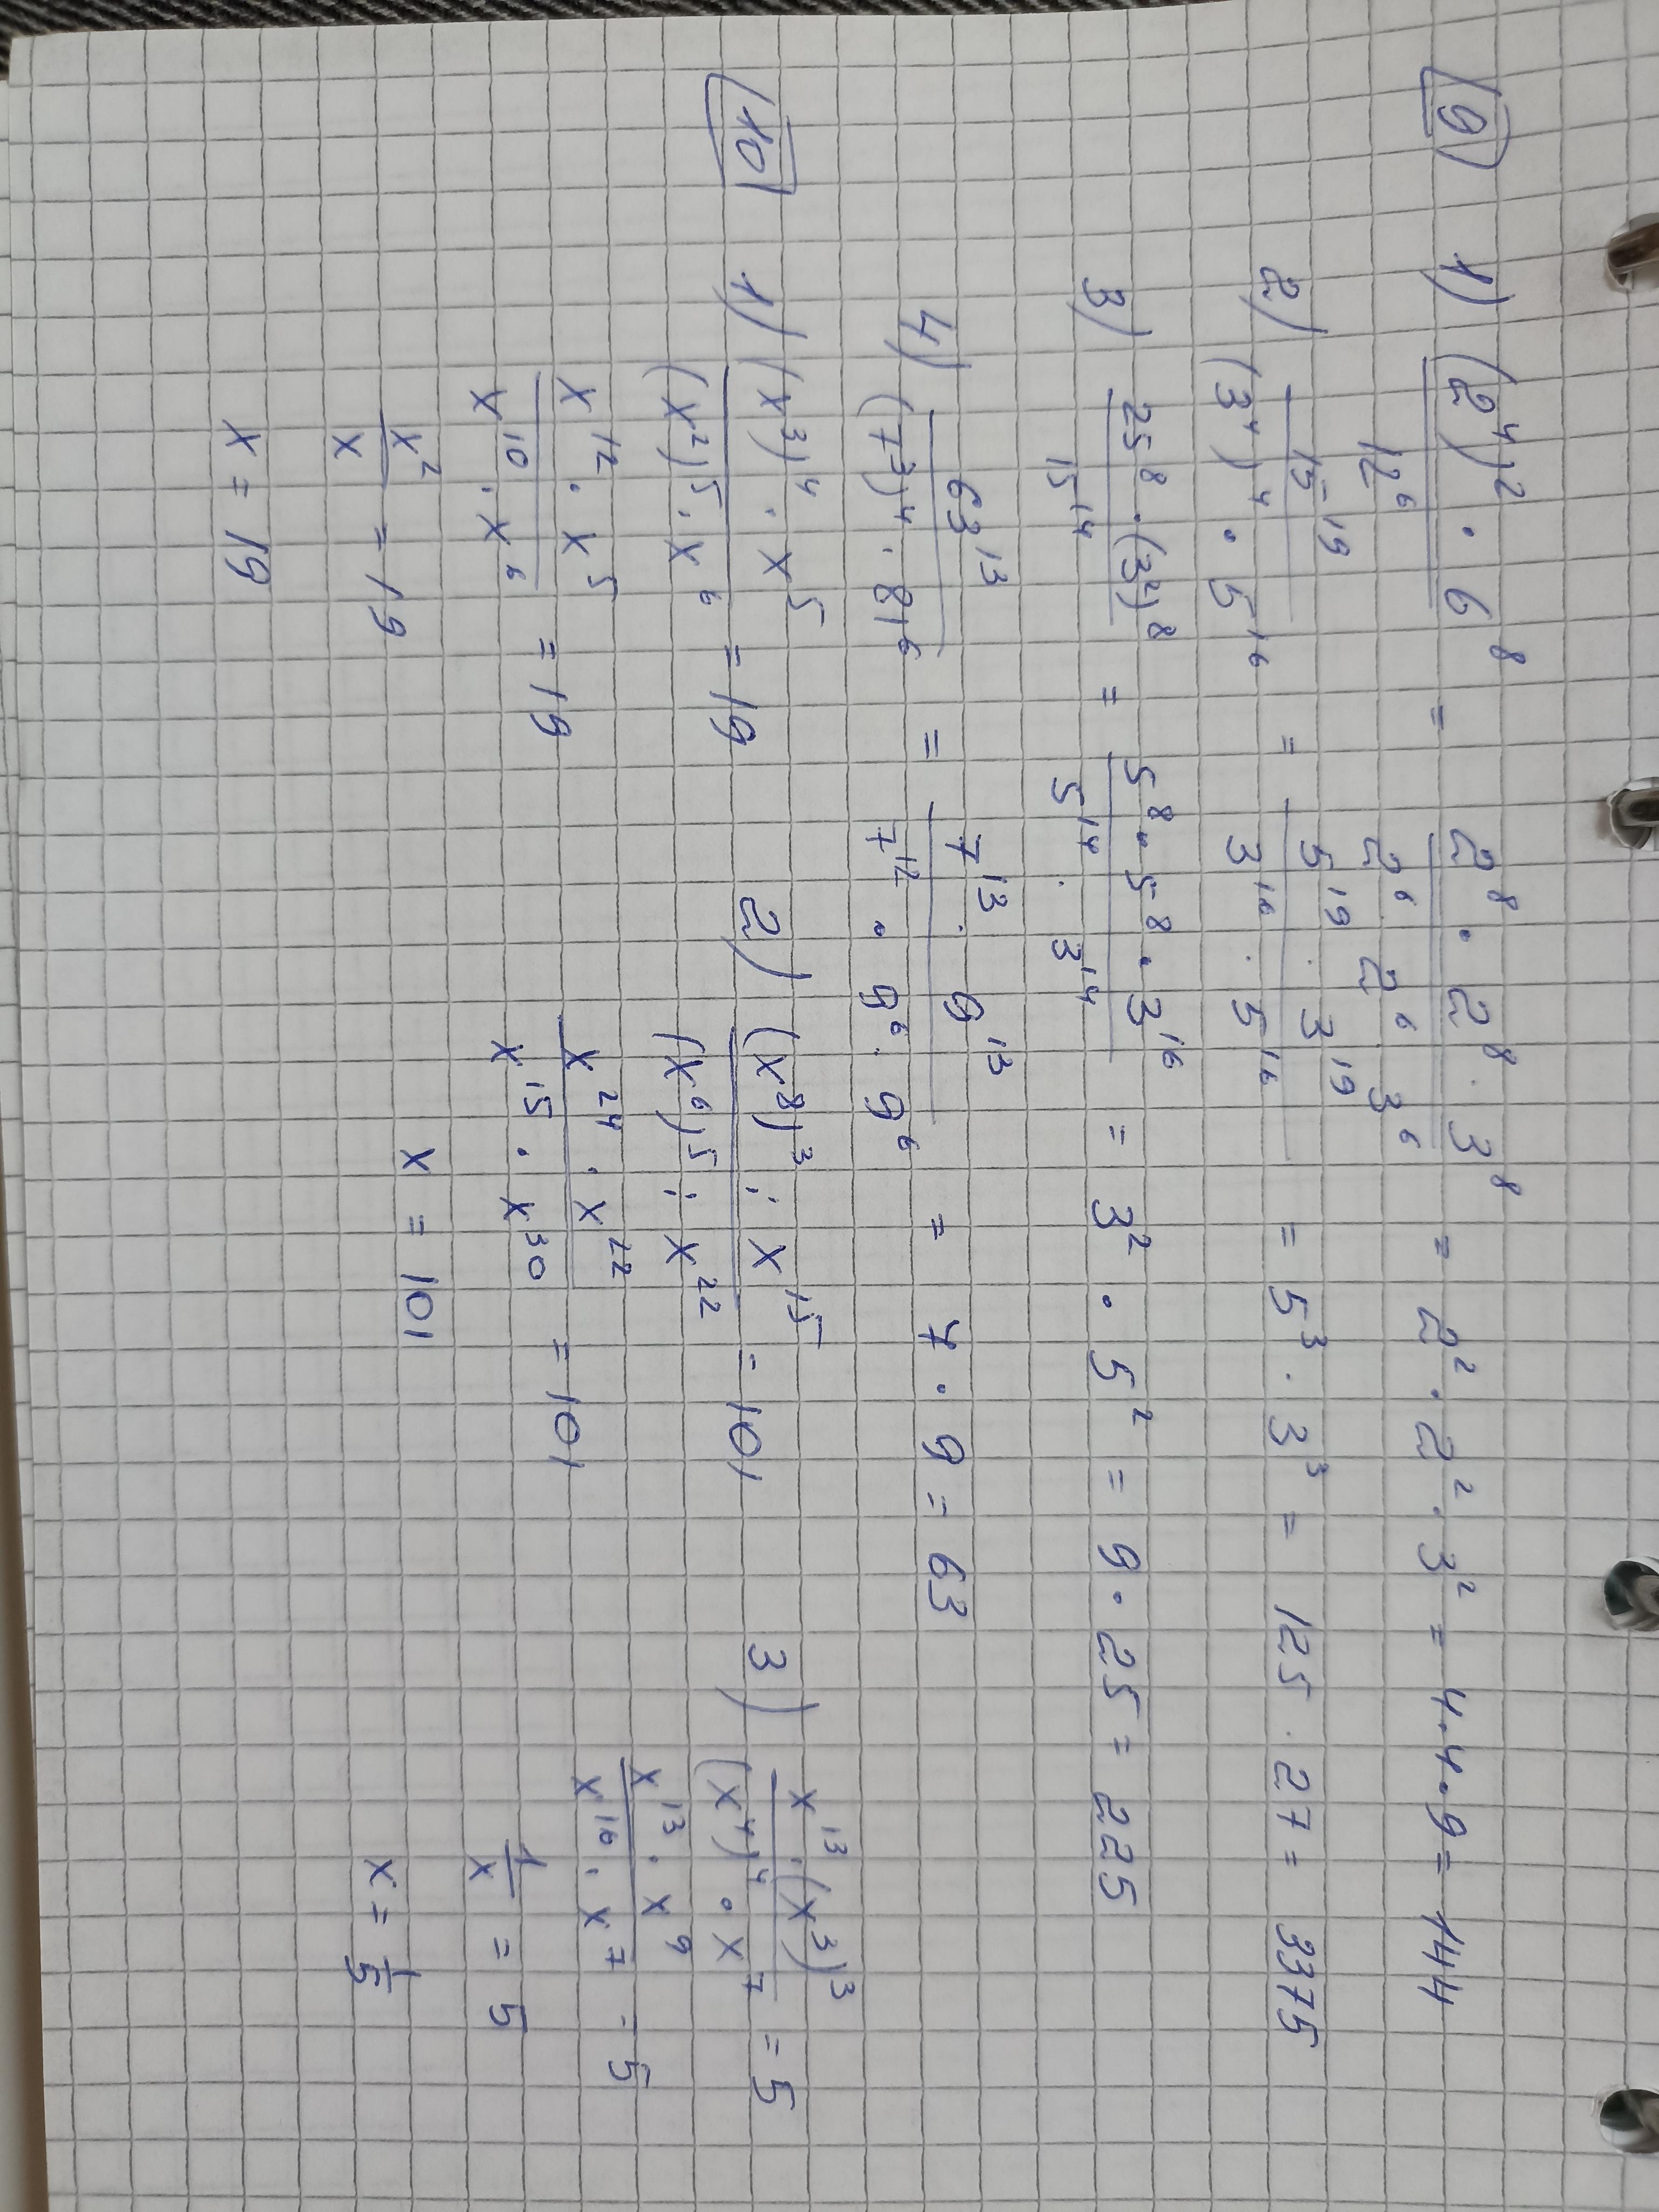 9 1) (2⁴)² · 6⁸ / 12⁶ = 2⁸ · 2⁸ · 3⁸ / 2⁶ · 2⁶ 3⁶ = 2² · 2² · 3² = 4 · 4 · 9 = 144
2) 15¹⁹ / (3⁴)⁴ · 5¹⁶ = 5¹⁹ · 3¹⁹ / 3¹⁶ · 5¹⁶ = 5³ · 3³ = 125 · 27 = 3375
3) 25⁸ · (3²)⁸ / 15¹⁴ = 5⁸ · 5⁸ · 3¹⁶ / 5¹⁴ · 3¹⁴ = 3² · 5² = 9 · 25 = 225
4) 63¹³ / (7³)⁴ · 81⁶ = 7¹³ · 9¹³ / 7¹² · 9⁶ · 9⁶ = 7 · 9 = 63
10 1) (x³)⁴ · x⁵ / (x²)⁵ · x⁶ = 19
x¹² · x⁵ / x¹⁰ · x⁶ = 19
x² / x = 19
x = 19
2) (x⁸)³ : x¹⁵ / (x⁶)⁵ : x²² = 101
x²⁴ · x²² / x¹⁵ · x³⁰ = 101
x = 101
3) x¹³ · (x³)³ / (x⁴)⁴ · x⁷ = 5
x¹³ · x⁹ / x¹⁶ · x⁷ = 5
1 / x = 5
x = 1/5